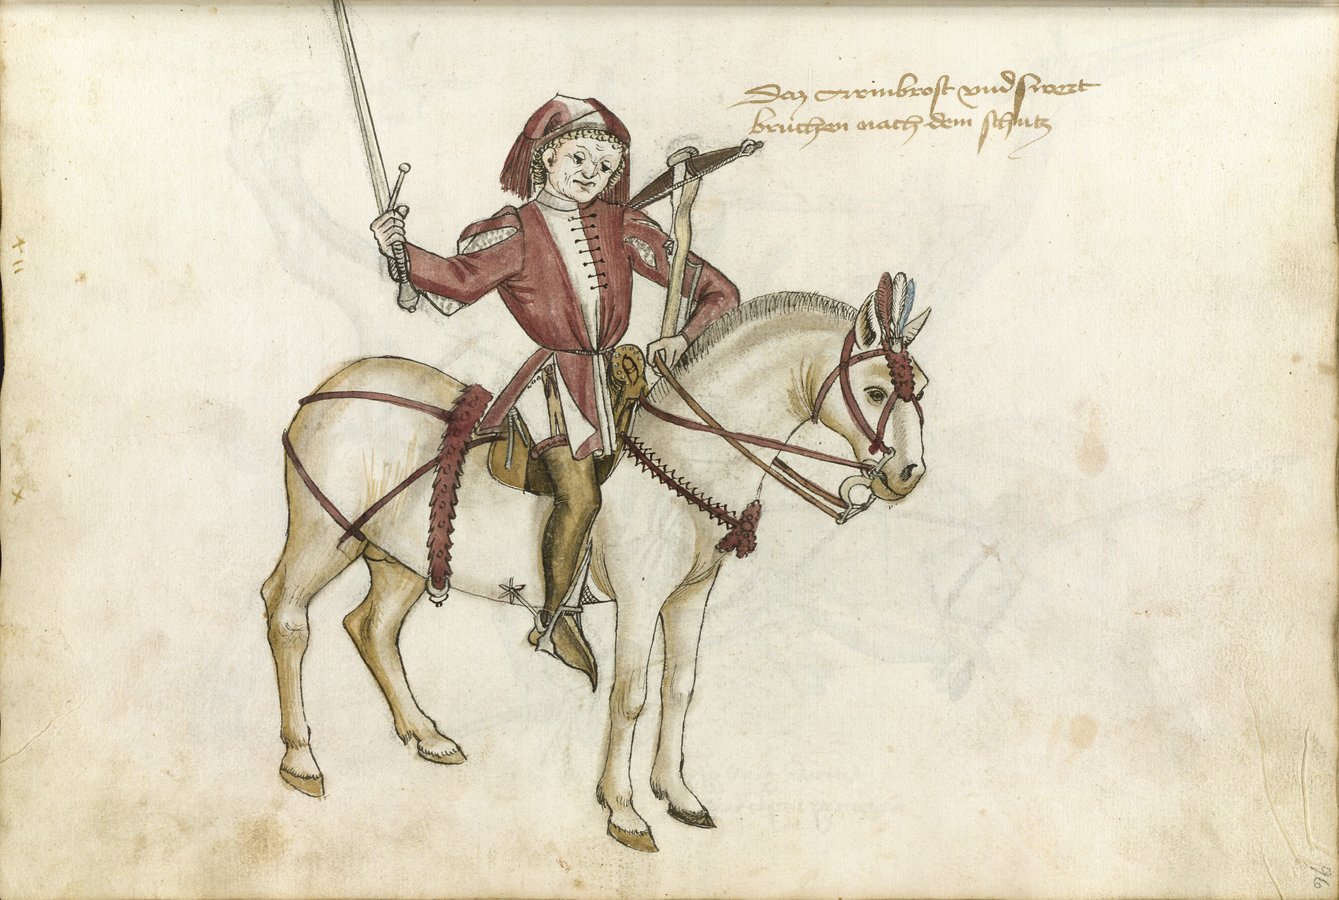 Daz Armbrost und swert
bruchen nach dem schutz
96